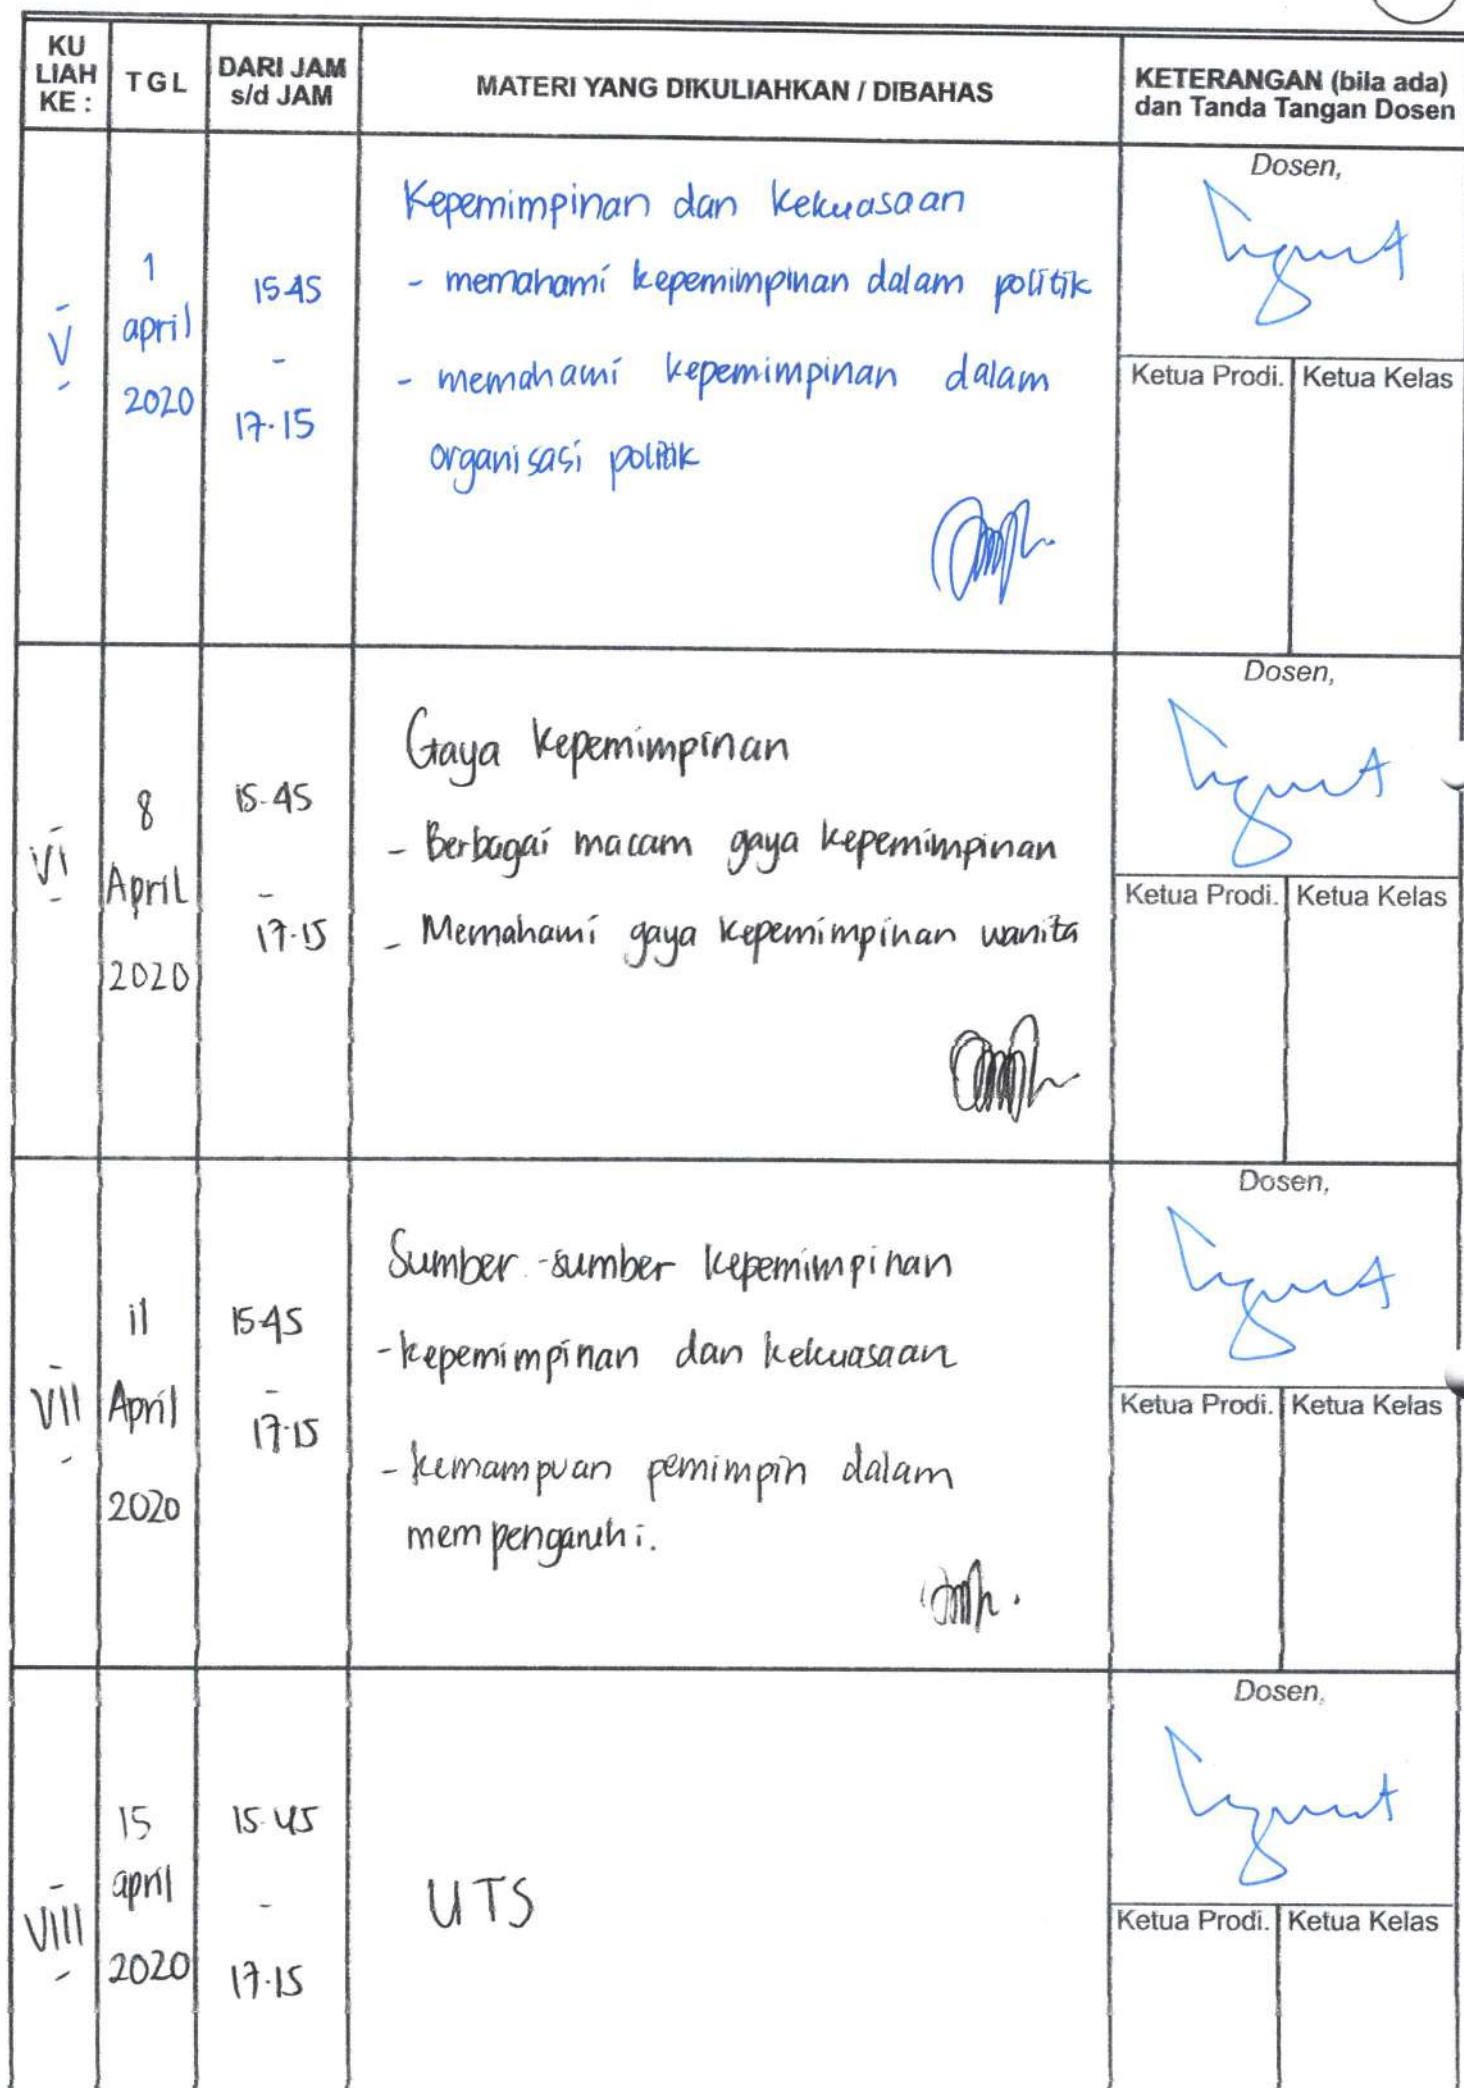 KU
LIAH
KE :
TGL
DARI JAM
s/d JAM
MATERI YANG DIKULIAHKAN / DIBAHAS
KETERANGAN (bila ada)
dan Tanda Tangan Dosen
V
1
april
2020
15.45
-
17.15
Kepemimpinan dan kekuasaan
- memahami kepemimpinan dalam politik
- memahami kepemimpinan dalam
organisasi politik
Dosen,
Ketua Prodi.
Ketua Kelas
VI
8
April
2020
15.45
-
17.15
Gaya kepemimpinan
- Berbagai macam gaya kepemimpinan
- Memahami gaya kepemimpinan wanita
Dosen,
Ketua Prodi.
Ketua Kelas
VII
11
April
2020
15.45
-
17.15
Sumber-sumber kepemimpinan
- kepemimpinan dan kekuasaan
- kemampuan pemimpin dalam
mempengaruhi.
Dosen,
Ketua Prodi.
Ketua Kelas
VIII
15
april
2020
15.45
-
17.15
UTS
Dosen,
Ketua Prodi.
Ketua Kelas